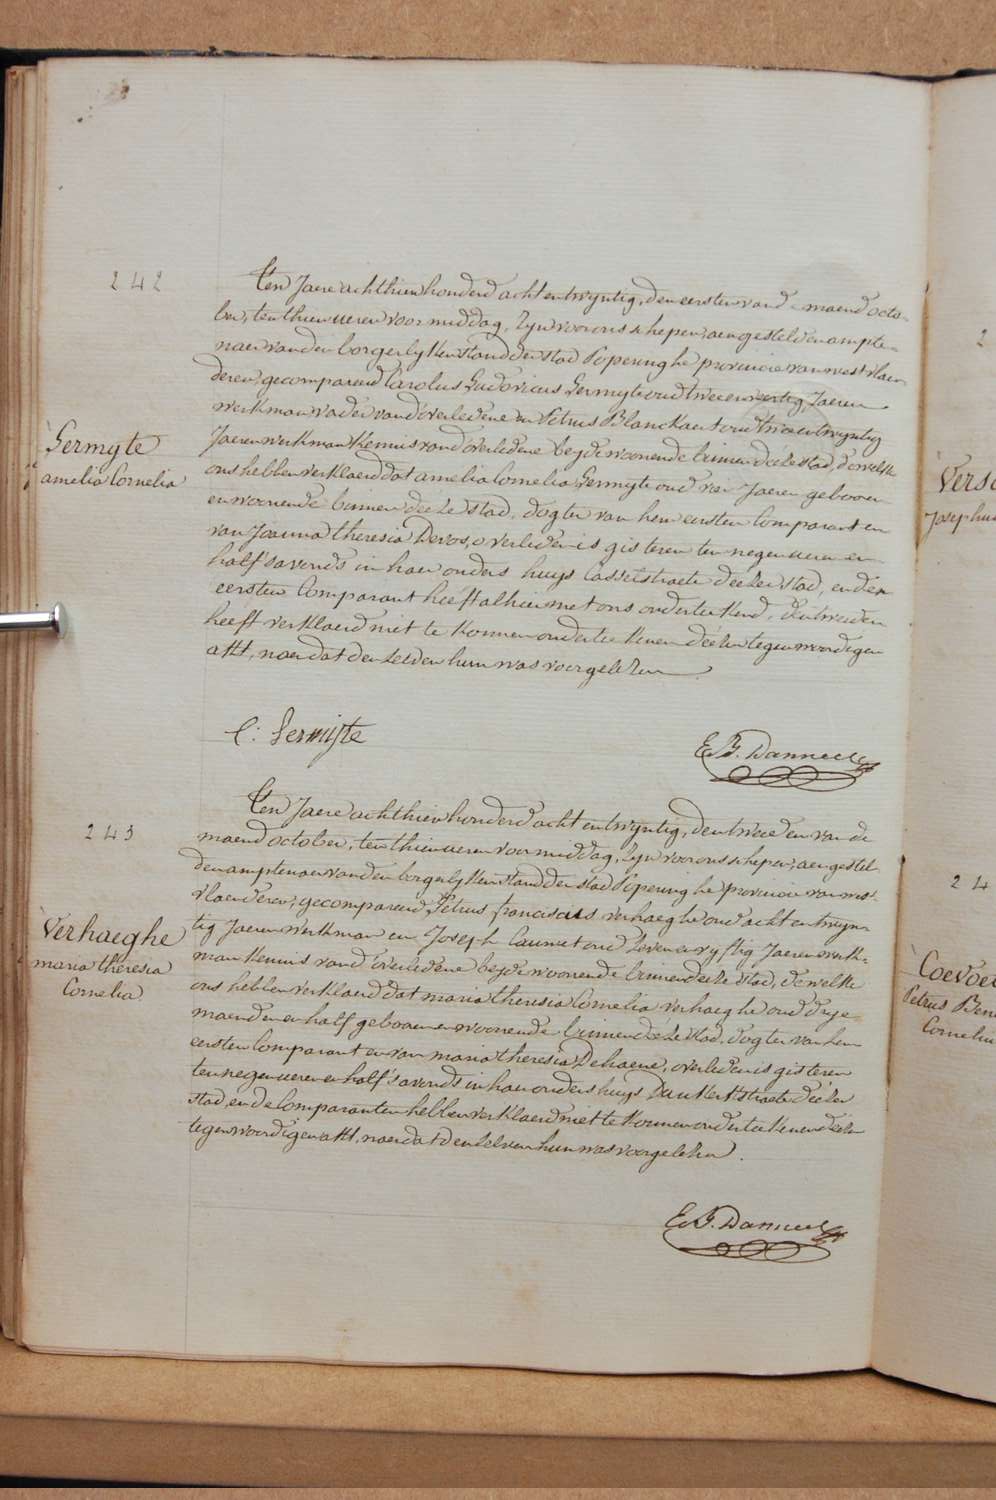 242
Sermyte
amelia Cornelia
Ten Jaere achthien honderd acht en twyntig, den eersten van d maend octo-
ber, ten thien ueren voor middag, Zyn voor ons schepen, aengestelden ampte-
naer van den borgerlyken stand der stad Poperinghe provincie van westvlaen
deren, gecompareerd Carolus Ludovicus Sermyte oud twee en veertig Jaeren
werkman vader van d'overledene en Petrus Blanckaert oud twee en twyntig
Jaeren werkman kennis van d'overledene beyde woonende binnen deeze stad, dewelke
ons hebben verklaerd dat amelia Cornelia Sermyte oud Jaeren gebooren
en woonende binnen deeze stad, dogter van hem eersten Comparant en
van Joanna theresia Devos, overleden is gisteren ten negen ueren en
half s'avonds in haer ouders huys Casselstraete deezer stad, en den
eersten Comparant heeft alhier met ons onderteekend, den tweeden
heeft verklaerd niet te konnen onderteekenen deezen tegenwoordigen
akt, naer dat den zelven hun was voorgelezen
C: Sermijte
E. B. Danneel
243
Verhaeghe
maria theresia
Cornelia
Ten Jaere achthien honderd acht en twyntig, den tweeden van de
maend october, ten thien ueren voor middag, Zyn voor ons schepen, aengestel
den amptenaer van den borgerlyken stand der stad Poperinghe provincie van west-
vlaenderen, gecompareerd Petrus franciscus verhaeghe oud acht en twyn-
tig Jaeren werkman en Joseph Caumet oud zeven en vyftig Jaeren werk-
man kennis van d'overledene beyde woonende binnen deeze stad, dewelke
ons hebben verklaerd dat maria theresia Cornelia verhaeghe oud drye
maenden en half gebooren en woonende binnen deeze stad, dogter van hem
eersten Comparant en van maria theresia Dehaene, overleden is gisteren
ten negen ueren en half s'avonds in haer ouders huys Dunkerkstraete deezer
stad, en de Comparanten hebben verklaerd niet te konnen onderteekenen deezen
tegenwoordigen akt, naer dat den zelven hun was voorgelezen.
E. B. Danneel
2
Josephus
24
Coevoet
Petrus Ben
Corneliu